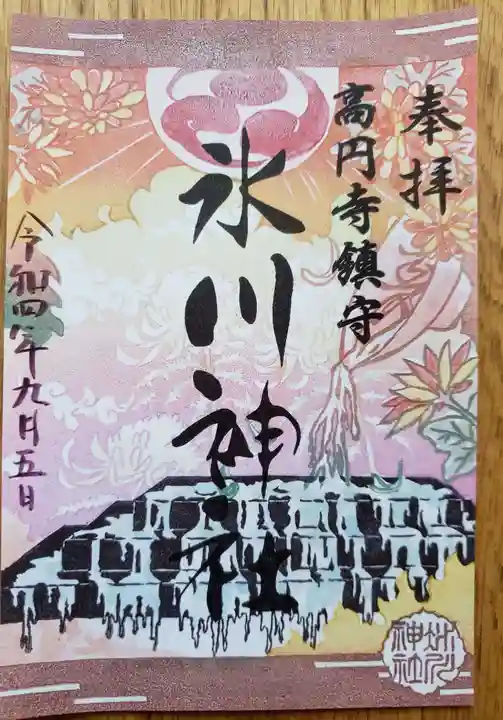 奉拝
高円寺鎮守
氷川神社
令和四年九月五日